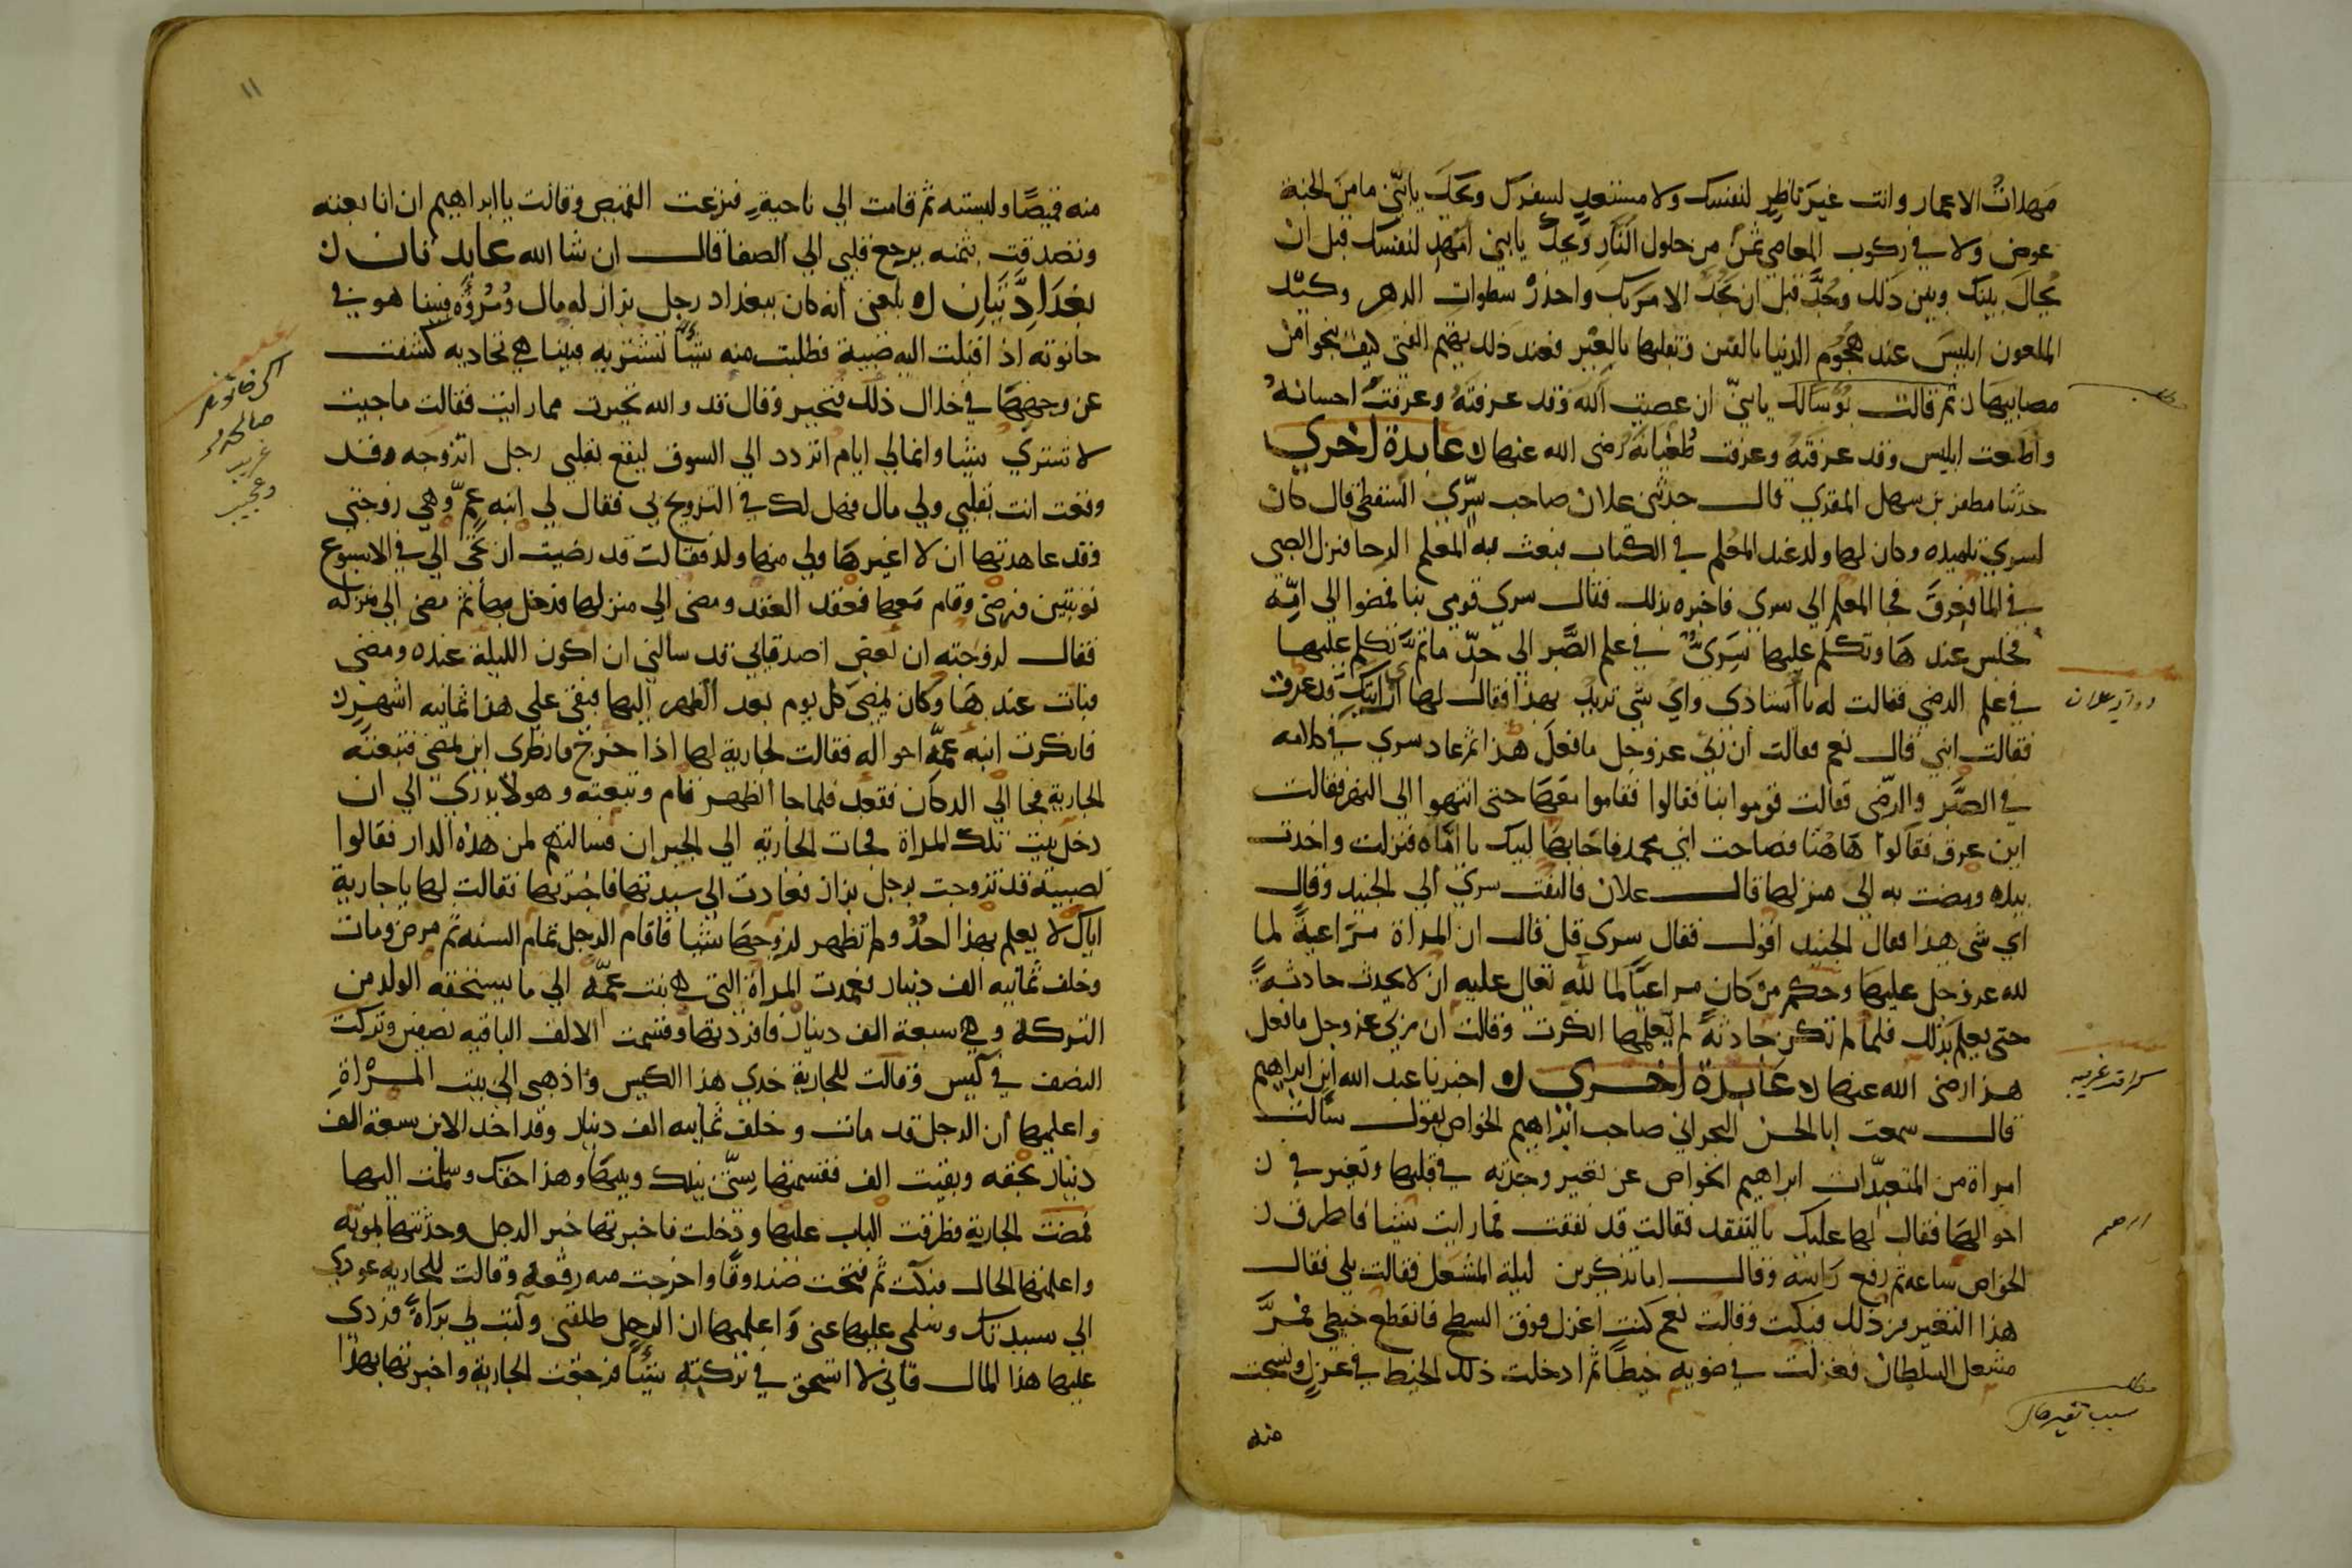 مهدات الاعمار وانت غير ناظر لنفسك ولا مستعد لسفرك ويحك يا بني ما من الجنة
عوض ولا في ركوب المعاصي ثمن من حلول النار ويحك يا بني امهد لنفسك قبل ان
يحال بينك وبين ذلك وجد قبل ان يجد الامر بك واحذر سطوات الدهر وكيد
الملعون ابليس عند هجوم الدنيا بالفتن وتقلبها بالعبر فعند ذلك يهتم التقي كيف ينجو من
مصايبها ثم قالت بؤسا لك يا بني ان عصيت الله وقد عرفته وعرفت احسانه
واطعت ابليس وقد عرفته وعرفت طغيانه رضي الله عنها عابدة اخري
حدثنا مظفر بن سهل المقري قال حدثني علان صاحب سري السقطي قال كان
لسري تلميذه وكان لها ولد عند المعلم في الكتاب فبعث به المعلم الي الرحا فنزل الصبي
في الما فغرق فجا المعلم الي سري فاخبره بذلك فقال سري قومي بنا فمضوا الي امه
فجلس عندها وتكلم عليها سري في علم الصبر الي حد ما ثم تكلم عليها
في علم الرضي فقالت له يا استاذي واي شي تريد بهذا فقال لها ان ابنك قد غرق
فقالت ابني قال نعم فقالت ان ربي عز وجل ما فعل هذا ثم عاد سري في كلامه
في الصبر والرضي فقالت قوموا بنا فقاموا معها حتي انتهوا الي النهر فقالت
اين غرق فقالوا هاهنا فصاحت ابني محمد فاجابها لبيك يا اماه فنزلت واخذت
بيده ومضت به الي منزلها قال علان فالتفت سري الي الجنيد وقال
اي شي هذا فقال الجنيد اقول فقال سري قل قال ان المراة مراعية لما
لله عز وجل عليها وحكم من كان مراعيا لما لله تعالي عليه ان لا يحدث حادثة
حتي يعلم بذلك فلما لم تكن حادثة لم يعلمها انكرت وقالت ان ربي عز وجل ما فعل
هذا رضي الله عنها عابدة اخري اخبرنا عبد الله ابن ابراهيم
قال سمعت ابا الحسن البحراني صاحب ابراهيم الخواص يقول سالت
امراة من المتعبدات ابراهيم الخواص عن تغير وجدته في قلبها وتغير في
احوالها فقال لها عليك بالتفقد فقالت قد تفقدت فما رايت شيئا فاطرق
الخواص ساعه ثم رفع راسه وقال اما تذكرين ليلة المشعل فقالت بلي فقال
هذا التغير من ذلك فبكت وقالت نعم كنت اغزل فوق السطح فانقطع خيطي فمر
مشعل السلطان فغزلت في ضويه خيطا ثم ادخلت ذلك الخيط في غزلي ونسجت
منه
سبب تغير حال
١١
منه قميصا ولبسته ثم قامت الي ناحية فنزعت القميص وقالت يا ابراهيم ان انا بعته
وتصدقت بثمنه يرجع قلبي الي الصفا قال ان شا الله عابدتان
بغداديتان بلغني انه كان ببغداد رجل بزاز له مال وثروة فبينا هو في
حانوته اذ اقبلت اليه صبية فطلبت منه شيئا تشتريه فبينا هي تحادثه كشفت
عن وجهها في خلال ذلك فتحير وقال قد والله تحيرت مما رايت فقالت ما جيت
لا شتري شيئا وانما لي ايام اتردد الي السوق ليقع بقلبي رجل اتزوجه وقد
وقعت انت بقلبي ولي مال فهل لك في التزويج بي فقال لي ابنة عم وهي زوجتي
وقد عاهدتها ان لا اغيرها ولي منها ولد فقالت قد رضيت ان تجي الي في الاسبوع
نوبتين فرضي وقام معها فعقد العقد ومضي الي منزلها فدخل بها ثم مضي الي منزله
فقال لزوجته ان بعض اصدقاي قد سالني ان اكون الليلة عنده ومضي
فبات عندها وكان يمضي كل يوم بعد الظهر اليها فبقي علي هذا ثمانيه اشهر
فانكرت ابنة عمه احواله فقالت لجارية لها اذا خرج فانظري اين يمضي فتبعته
الجارية فجا الي الدكان فقعد فلما جا الظهر قام وتبعته وهو لا يدري الي ان
دخل بيت تلك المراة فجات الجارية الي الجيران فسالتهم لمن هذه الدار فقالوا
لصبية قد تزوجت برجل بزاز فعادت الي سيدتها فاخبرتها فقالت لها يا جارية
اياك لا يعلم بهذا احد ولم تظهر لزوجها شيئا فاقام الرجل تمام السنه ثم مرض ومات
وخلف ثمانيه الف دينار فعمدت المراة التي هي بنت عمه الي ما يستحقه الولد من
التركة وهي سبعة الف دينار فافردتها وقسمت الالف الباقيه نصفين وتركت
النصف في كيس وقالت للجارية خذي هذا الكيس واذهبي الي بيت المراة
واعلميها ان الرجل قد مات وخلف ثمانيه الف دينار وقد اخذ الابن سبعة الف
دينار بحقه وبقيت الف فقسمتها بيني وبينك وهذا حقك وسلمت اليها
فمضت الجارية فطرقت الباب عليها ودخلت فاخبرتها خبر الرجل وحدثتها بموته
واعلمتها الحال فبكت ثم فتحت صندوقا واخرجت منه رقعة وقالت للجاريه عودي
الي سيدتك وسلمي عليها عني واعلميها ان الرجل طلقني وكتب لي براة فردي
عليها هذا المال فاني لا استحق في تركته شيئا فرجعت الجارية واخبرتها بهذا